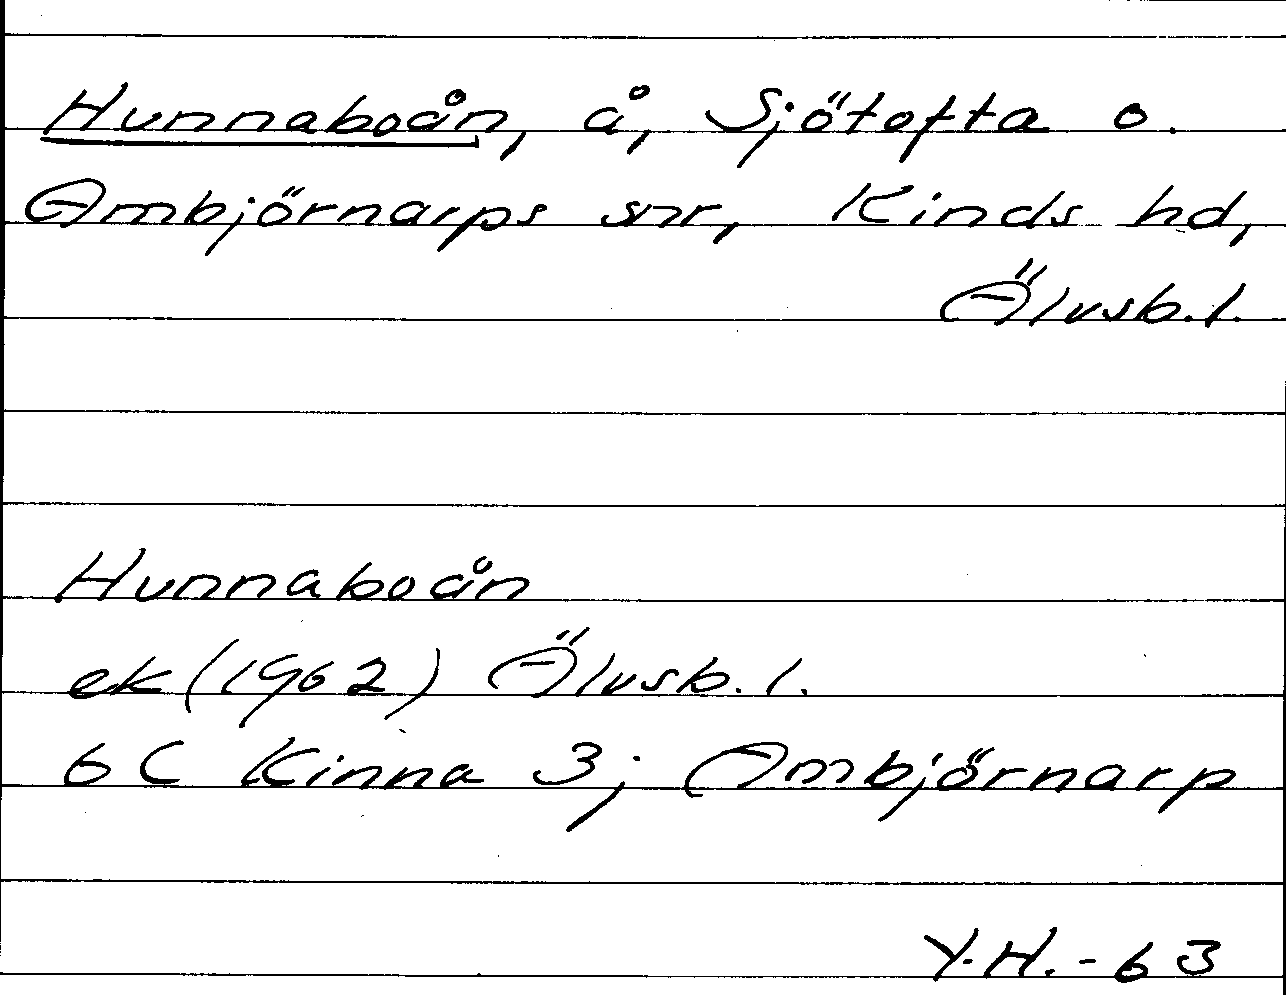 Hunnaboån, å, Sjötofta o.
Ambjörnarps snr, Kinds hd,
Älvsb.l.
Hunnaboån
ek (1962) Älvsb.l.
6 C Kinna 3j Ambjörnarp
Y.H.-63